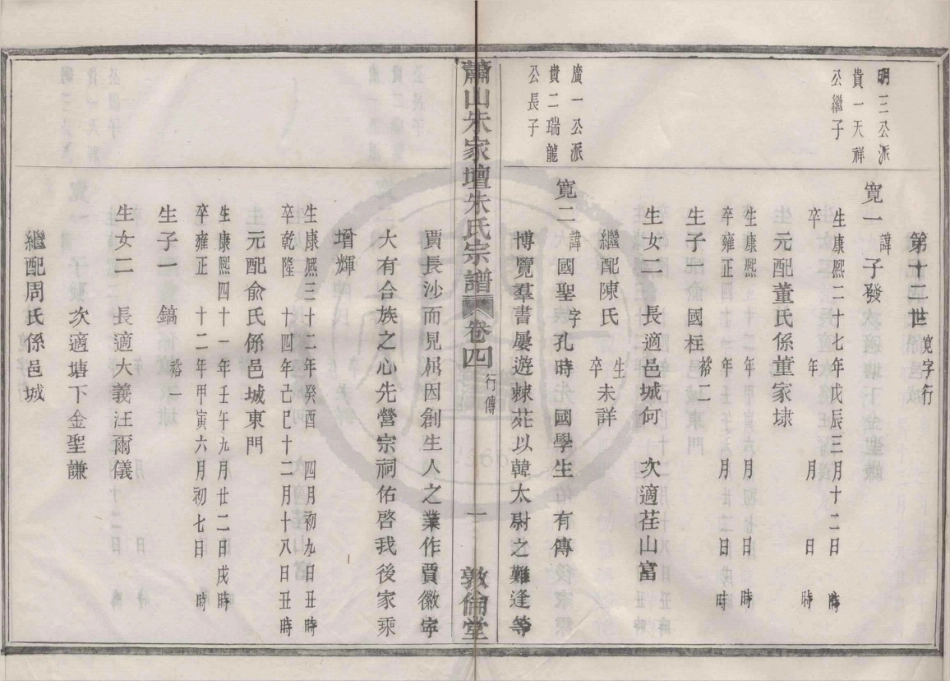 第十二世 寬字行
明三公派
貴一天祥
公繼子
寬一 諱 子發
生康熙二十七年戊辰三月十二日 時
卒 年 月 日 時
元配董氏係董家埭
生康熙 年 月 日 時
卒雍正 年 月 日 時
生子一 國柱 裕二
生女二 長適邑城何 次適荏山富
繼配陳氏 生卒未詳
廣一公派
貴二瑞龍
公長子
寬二 諱 國聖 字 孔時 國學生 有傳
博覽羣書屢遊棘苑以韓太尉之難逢等
蕭山朱家壇朱氏宗譜 卷四 行傳 一 敦倫堂
賈長沙而見屈因創生人之業作賈徽寧
大有合族之心先營宗祠佑啓我後家乘
增輝
生康熙三十二年癸酉 四月初九日丑時
卒乾隆 十四年己巳十二月十八日丑時
元配俞氏係邑城東門
生康熙四十一年壬午九月廿二日戌時
卒雍正 十二年甲寅六月初七日 時
生子一 鎬 裕一
生女二 長適大義汪爾儀
次適塘下金聖謙
繼配周氏係邑城